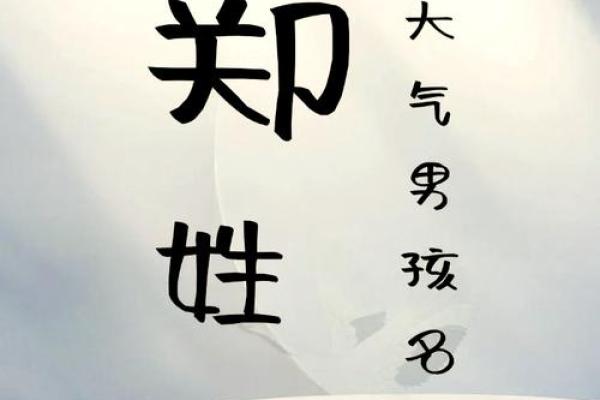 郑姓
大气男孩名